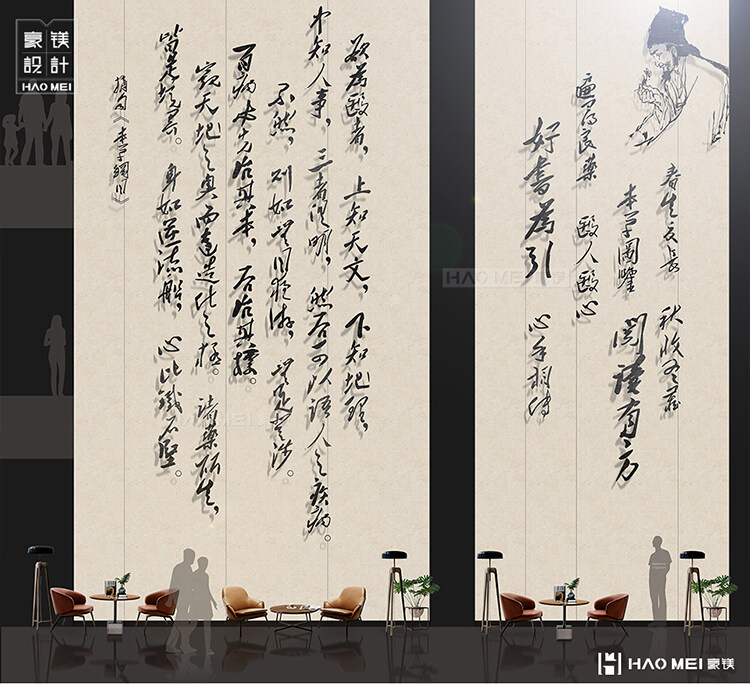 豪镁
設計
HAO MEI
欲為毉者，上知天文，下知地理，
中知人事，三者俱明，然后可以語人之疾病。
不然，則如無目夜游，無足登涉。
百病必先治其本，后治其標。
窺天地之奥而達造化之極。諸藥所生，
皆是境界。身如逆流船，心比鐵石堅。
摘自《本草綱目》
春生夏長 秋收冬藏
本草圖 閱讀有方
良藥 毉人毉心
好書為引 心手相傳
HAO MEI 豪镁
HAO MEI 豪镁